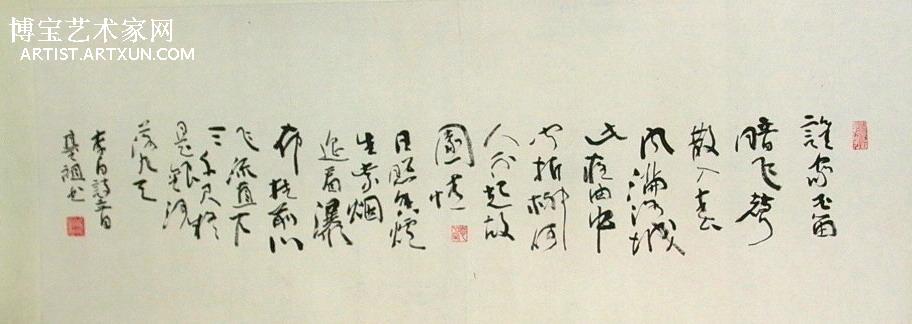 博宝艺术家网
ARTIST.ARTXUN.COM
誰家玉笛
暗飞聲
散入春
风滿洛城
此夜曲中
闻折柳何
人不起故
園情
日照香炉
生紫烟
遥看瀑
布挂前川
飞流直下
三千尺疑
是银河
落九天
李白詩二首